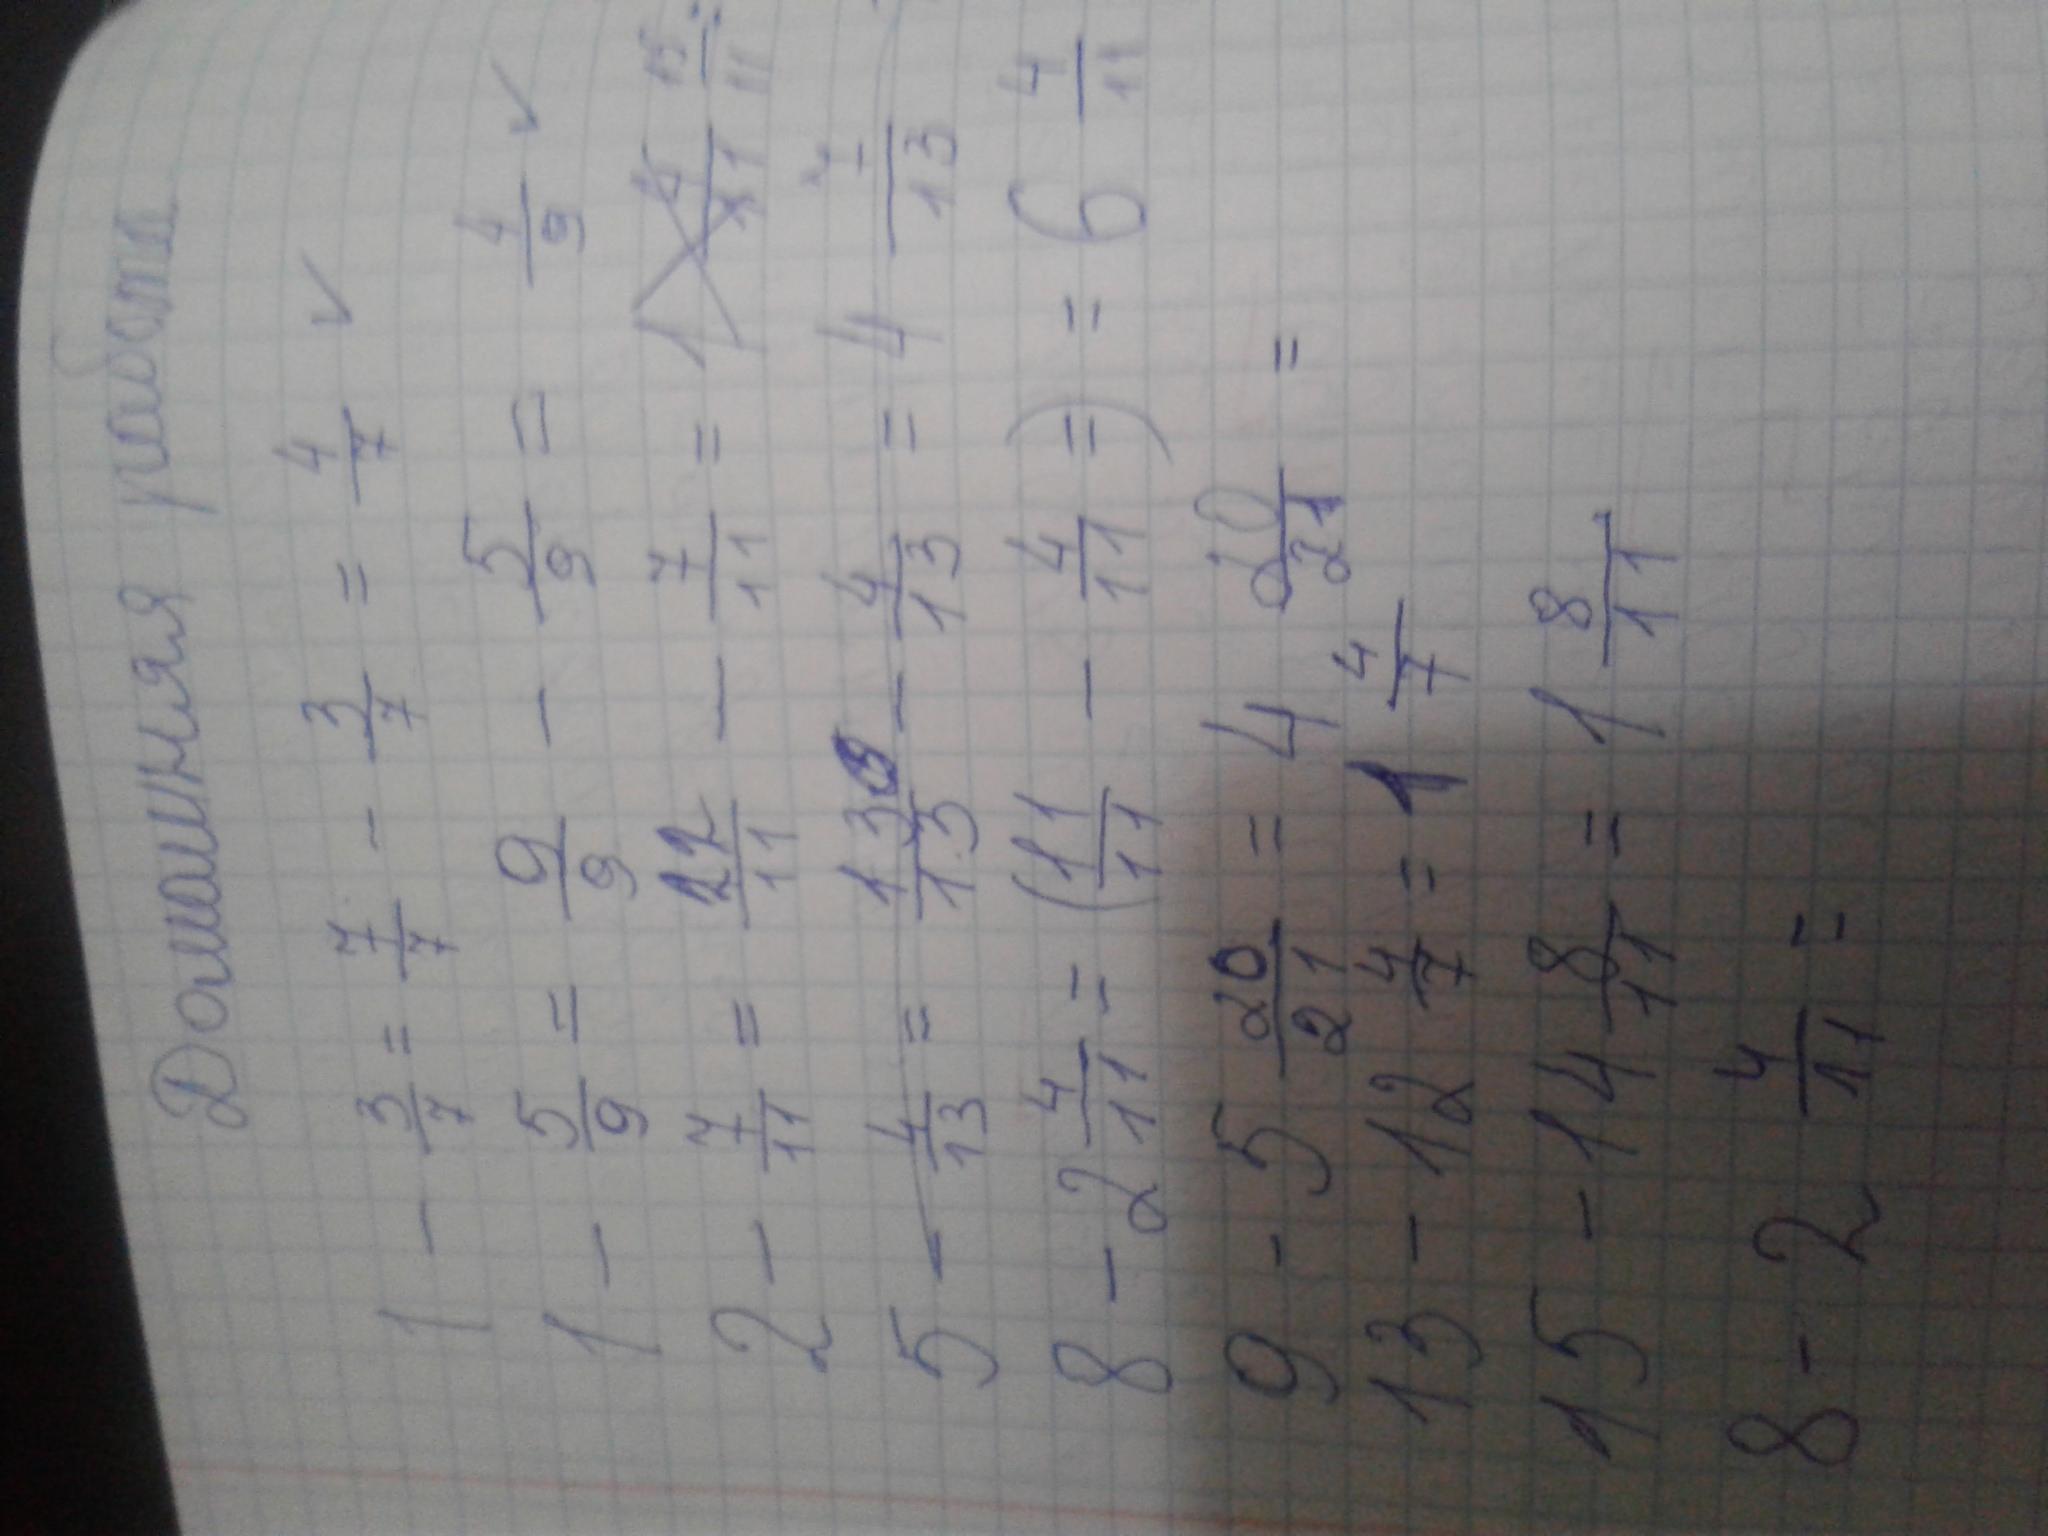 Домашняя работа
1 - 3/7 = 7/7 - 3/7 = 4/7 ✓
1 - 5/9 = 9/9 - 5/9 = 4/9 ✓
2 - 7/11 = 22/11 - 7/11 = 1 15/11 =
5 - 4/13 = 13/13 - 4/13 = 4 /13
8 - 2 4/11 = (11/11 - 4/11 =) = 6 4/11
9 - 5 20/21 = 4 20/21 =
13 - 12 4/7 = 1 4/7
15 - 14 8/11 = 1 8/11
8 - 2 4/11 =